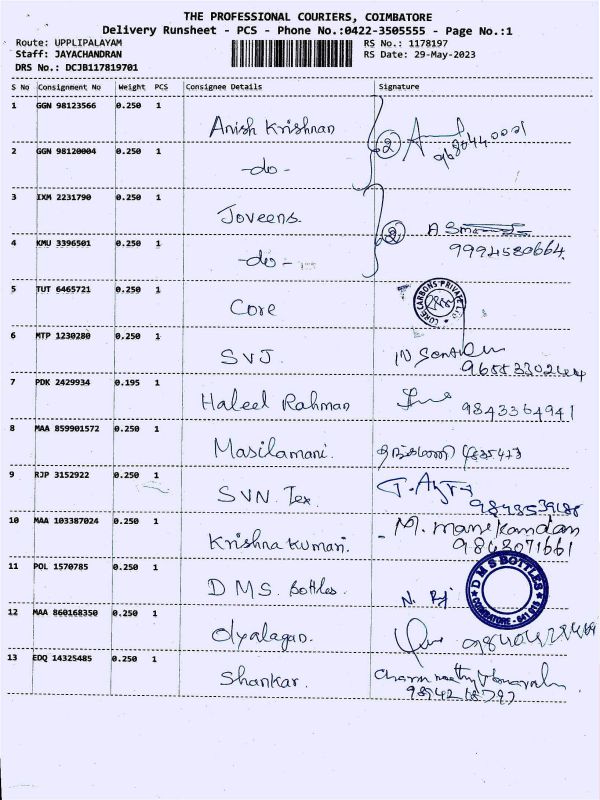 THE PROFESSIONAL COURIERS, COIMBATORE
Delivery Runsheet - PCS - Phone No.:0422-3505555 - Page No.:1
Route: UPPLIPALAYAM
RS No.: 1178197
Staff: JAYACHANDRAN
RS Date: 29-May-2023
DRS No.: DCJB117819701
S No Consignment No Weight PCS Consignee Details Signature
1 GGN 98123566 0.250 1 Anish Krishnan 2
2 GGN 98120004 0.250 1 -do-
3 IXM 2231790 0.250 1 Joveens.
4 KMU 3396501 0.250 1 -do- 9994580664
5 TUT 6465721 0.250 1 Core CORE CARBONS PRIVATE
6 MTP 1230280 0.250 1 SVJ
7 PDK 2429934 0.195 1 Haleel Rahman 9843364941
8 MAA 859901572 0.250 1 Masilamani.
9 RJP 3152922 0.250 1 SVN. Tex
10 MAA 103387024 0.250 1 Krishna Kumari. M. manikandan
9843071661
11 POL 1570785 0.250 1 DMS. Bottles N. DMS BOTTLES COIMBATORE - 641 015
12 MAA 860168350 0.250 1
13 EDQ 14325485 0.250 1 Shankar.